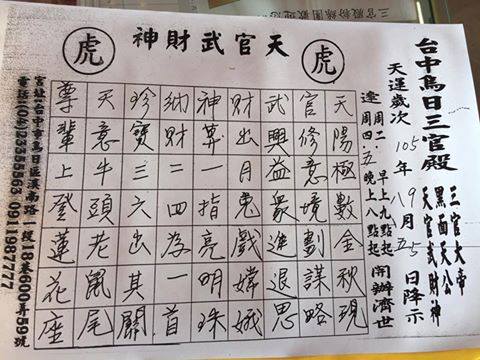 天官武財神
虎
虎
台中烏日三官殿
三官大帝
黑面天公
天官武財神
天運歲次105年 月 日降示
逢周二、早上九點起
周四、五晚上八點起
開辦濟世
天陽極數金秋現
官修意境劃謀略
武興益眾進退思
財出月鬼戲嫦娥
神算一指亮明珠
納財二四為一首
珍寶三六出其關
天意牛頭老鼠尾
尊輩上登蓮花座
宮址:台中市烏日區溪南路一段18巷600弄59號
電話:(04)23355563 0911987777